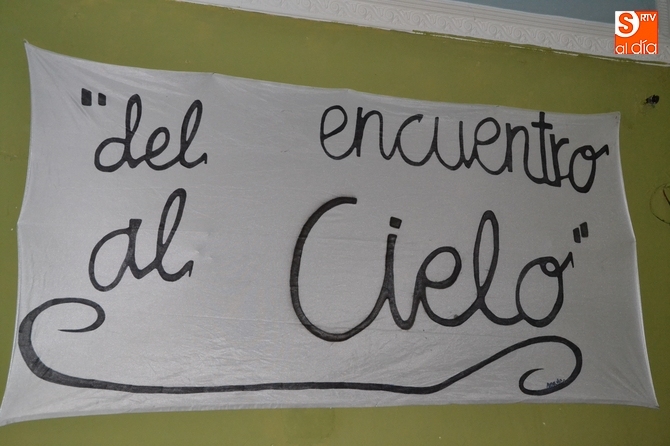 S RTV
al día
"del encuentro
al Cielo"